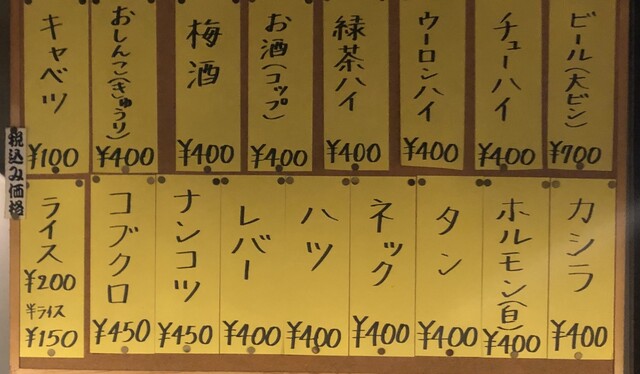 ビール(大ビン)
¥700
チューハイ
¥400
ウーロンハイ
¥400
緑茶ハイ
¥400
お酒(コップ)
¥400
梅酒
¥400
おしんこ(きゅうり)
¥400
キャベツ
¥100
税込み価格
カシラ
¥400
ホルモン(白)
¥400
タン
¥400
ネック
¥400
ハツ
¥400
レバー
¥400
ナンコツ
¥450
コブクロ
¥450
ライス
¥200
半ライス
¥150